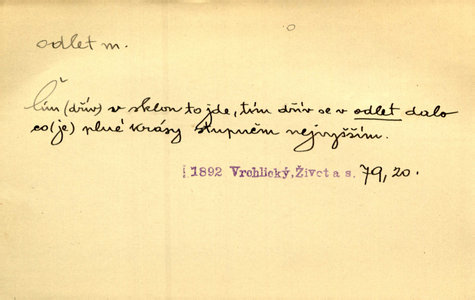 odlet m.
Čím (dřív) v sklon to jde, tím dřív se v odlet dalo
co (je) plné krásy stupněm nejvyšším.
1892 Vrchlický, Život a s. 79, 20.